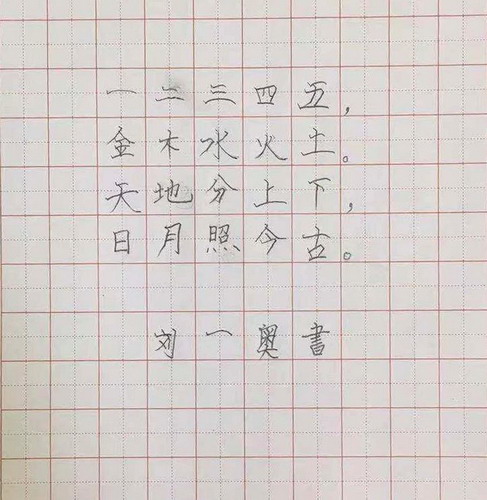 一二三四五，
金木水火土。
天地分上下，
日月照今古。
刘一奥書